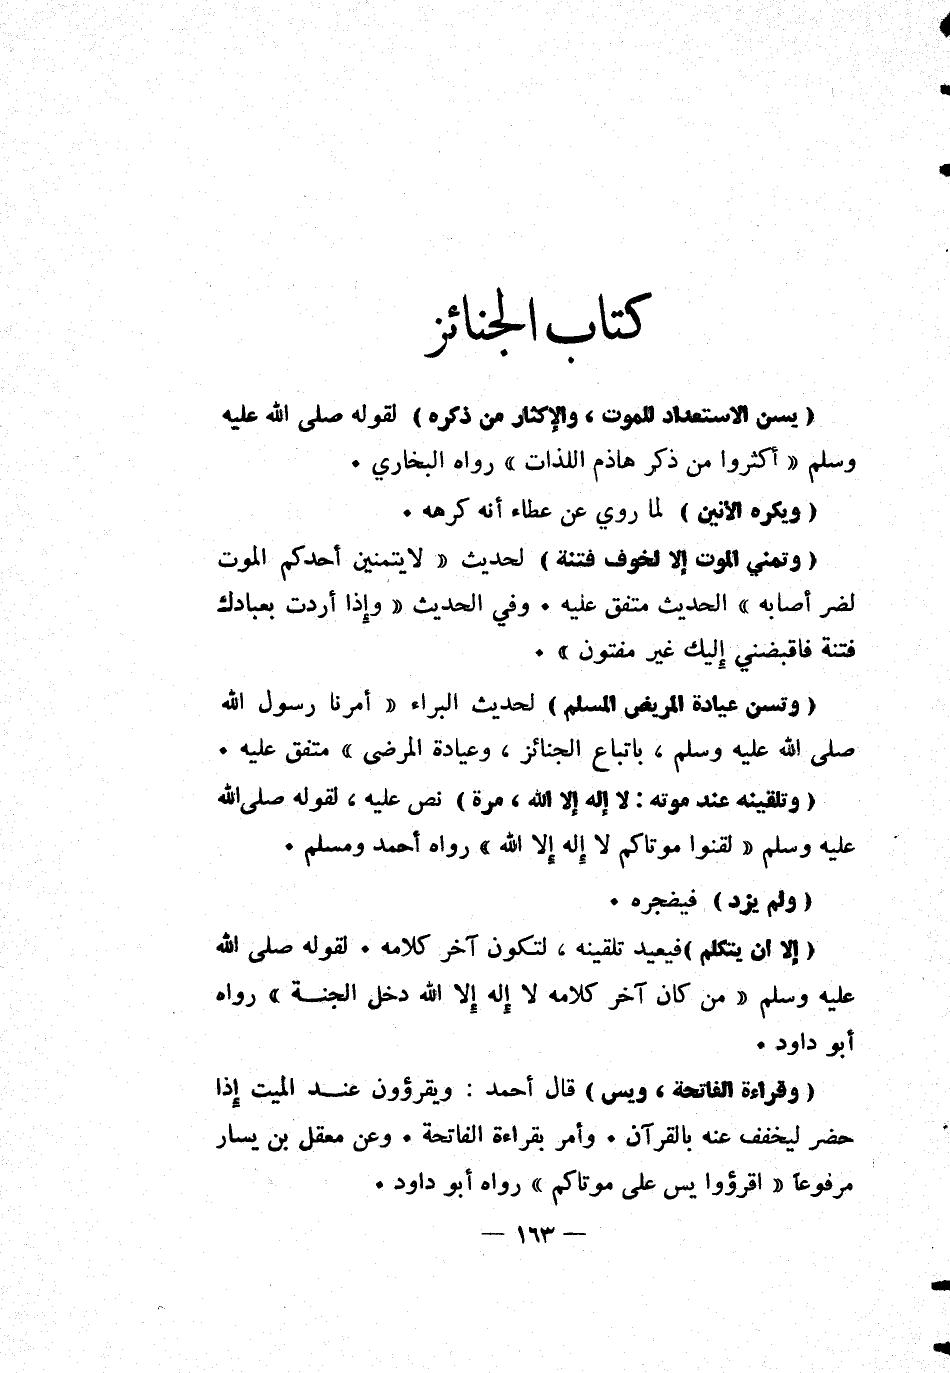 كتاب الجنائز
( يسن الاستعداد للموت ، والإكثار من ذكره ) لقوله صلى الله عليه
وسلم « أكثروا من ذكر هاذم اللذات » رواه البخاري .
( ويكره الأنين ) لما روي عن عطاء أنه كرهه .
( وتمني الموت إلا لخوف فتنة ) لحديث « لايتمنين أحدكم الموت
لضر أصابه » الحديث متفق عليه . وفي الحديث « وإذا أردت بعبادك
فتنة فاقبضني إليك غير مفتون » .
( وتسن عيادة المريض المسلم ) لحديث البراء « أمرنا رسول الله
صلى الله عليه وسلم ، باتباع الجنائز ، وعيادة المرضى » متفق عليه .
( وتلقينه عند موته : لا إله إلا الله ، مرة ) نص عليه ، لقوله صلى الله
عليه وسلم « لقنوا موتاكم لا إله إلا الله » رواه أحمد ومسلم .
( ولم يزد ) فيضجره .
( إلا أن يتكلم ) فيعيد تلقينه ، لتكون آخر كلامه . لقوله صلى الله
عليه وسلم « من كان آخر كلامه لا إله إلا الله دخل الجنـــة » رواه
أبو داود .
( وقراءة الفاتحة ، ويس ) قال أحمد : ويقرؤون عنـــد الميت إذا
حضر ليخفف عنه بالقرآن . وأمر بقراءة الفاتحة . وعن معقل بن يسار
مرفوعاً « اقرؤوا يس على موتاكم » رواه أبو داود .
— ١٦٣ —